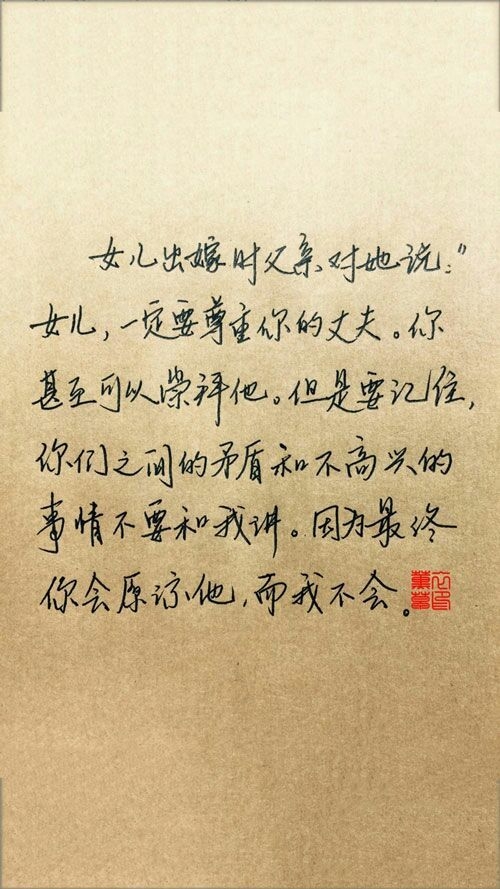 女儿出嫁时父亲对她说："
女儿，一定要尊重你的丈夫。你
甚至可以崇拜他。但是要记住，
你们之间的矛盾和不高兴的
事情不要和我讲。因为最终
你会原谅他，而我不会。